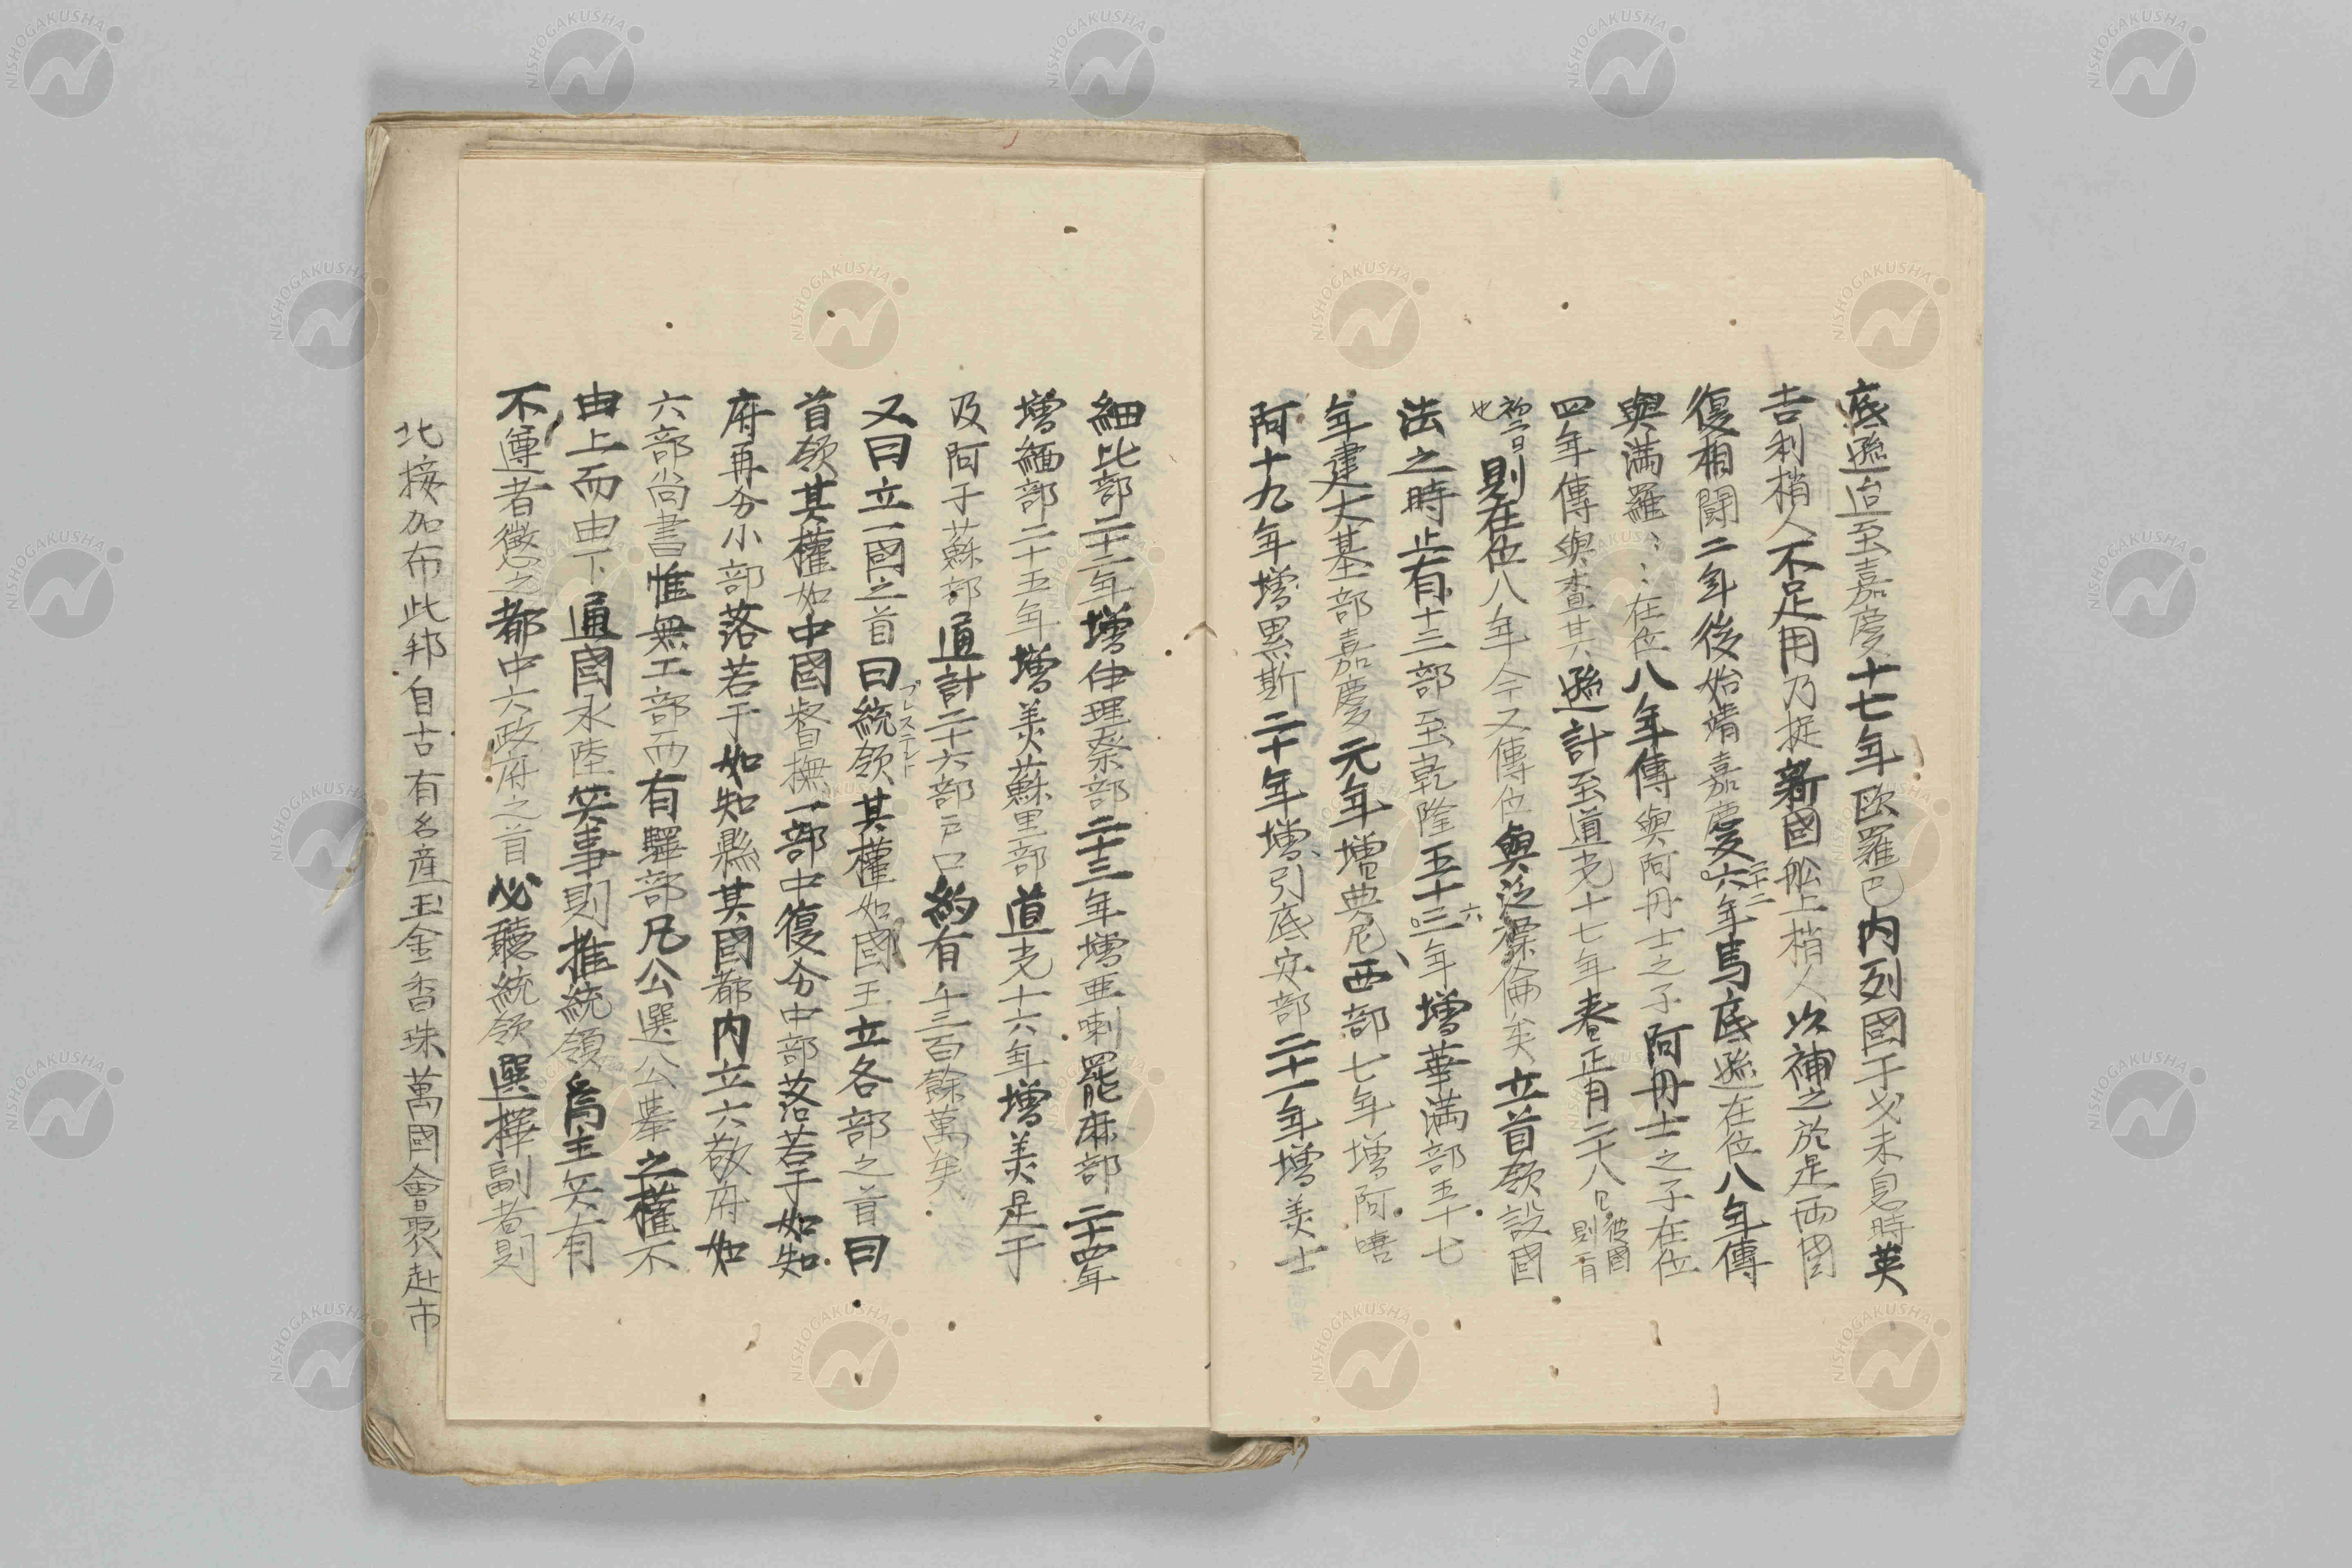 底遜迨至嘉慶十七年欧羅巴内列國干戈未息時英
吉利梢人不足用乃捉新國舩上梢人以補之於是両國
復相闘二年後始靖嘉慶六年二十二馬底遜在位八年傳
與満羅〻〻在位八年傳與阿丹士之子阿丹士之子在位
四年傳與査其遜計至道光十七年春正月二十八日彼國則二月
初三日也則在位八年今又傳位與泛䙚倫矣立首領設國
法之時止有十三部至乾隆五十三六年增華満部五十七
年建大基部嘉慶元年增典尼西部七年增阿嘻
阿十九年增累斯二十年增引底安部二十一年增美士
細比部二十二年增伊理奈部二十三年增亜喇罷麻部二十四年
增緬部二十五年增美蘇里部道光十六年增美是干
及阿干蘇部通計二十六部戸口約有千三百餘萬矣
又曰立一國之首曰統領其權如國王立各部之首曰
プレステレト
首領其權如中國督撫一部中復分中部落若干如知
府再分小部落若干如知縣其國都内立六政府如
六部尚書惟無工部而有驛部凡公選公舉之權不
由上而由下通國水陸兵事則推統領爲主矣有
不遵者懲之都中六政府之首必聽統領選擇副者則
北接加布此邦自古有名産玉金香珠萬國會聚赴市
NISHOGAKUSHA